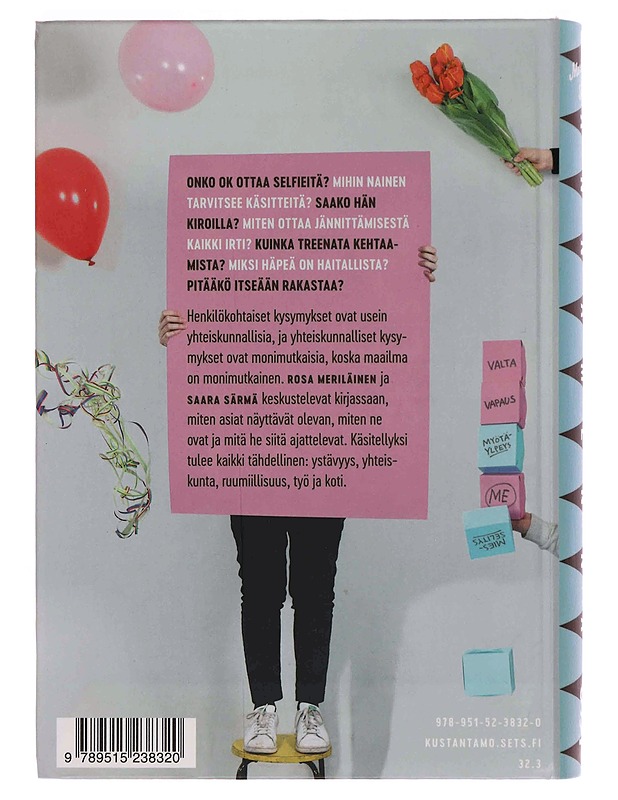 ONKO OK OTTAA SELFIEITÄ? MIHIN NAINEN
TARVITSEE KÄSITTEITÄ? SAAKO HÄN
KIROILLA? MITEN OTTAA JÄNNITTÄMISESTÄ
KAIKKI IRTI? KUINKA TREENATA KEHTAA-
MISTA? MIKSI HÄPEÄ ON HAITALLISTA?
PITÄÄKÖ ITSEÄÄN RAKASTAA?
Henkilökohtaiset kysymykset ovat usein
yhteiskunnallisia, ja yhteiskunnalliset kysy-
mykset ovat monimutkaisia, koska maailma
on monimutkainen. ROSA MERILÄINEN ja
SAARA SÄRMÄ keskustelevat kirjassaan,
miten asiat näyttävät olevan, miten ne
ovat ja mitä he siitä ajattelevat. Käsitellyksi
tulee kaikki tähdellinen: ystävyys, yhteis-
kunta, ruumiillisuus, työ ja koti.
VALTA
VAPAUS
MYÖTÄ-
YLPEYS
ME
MIES-
SELITYS
978-951-52-3832-0
KUSTANTAMO.SETS.FI
32.3
9 789515 238320